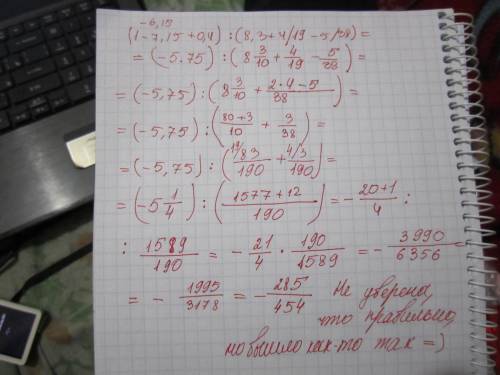 -6,15
(1-7,15+0,4):(8,3+4/19-5/38)=
=(-5.75):(8 3/10+4/19-5/38)=
=(-5,75):(8 3/10+(2·4-5)/38)=
=(-5,75):((80+3)/10+3/38)=
=(-5,75):(19/83/190+4/3/190)=
=(-5 1/4):((1577+12)/190)=-(20+1)/4:
:1589/190=-21/4·190/1589=-3990/6356=
=-1995/3178=-285/454 Не уверена,
что правильно,
но вышло как-то так =)